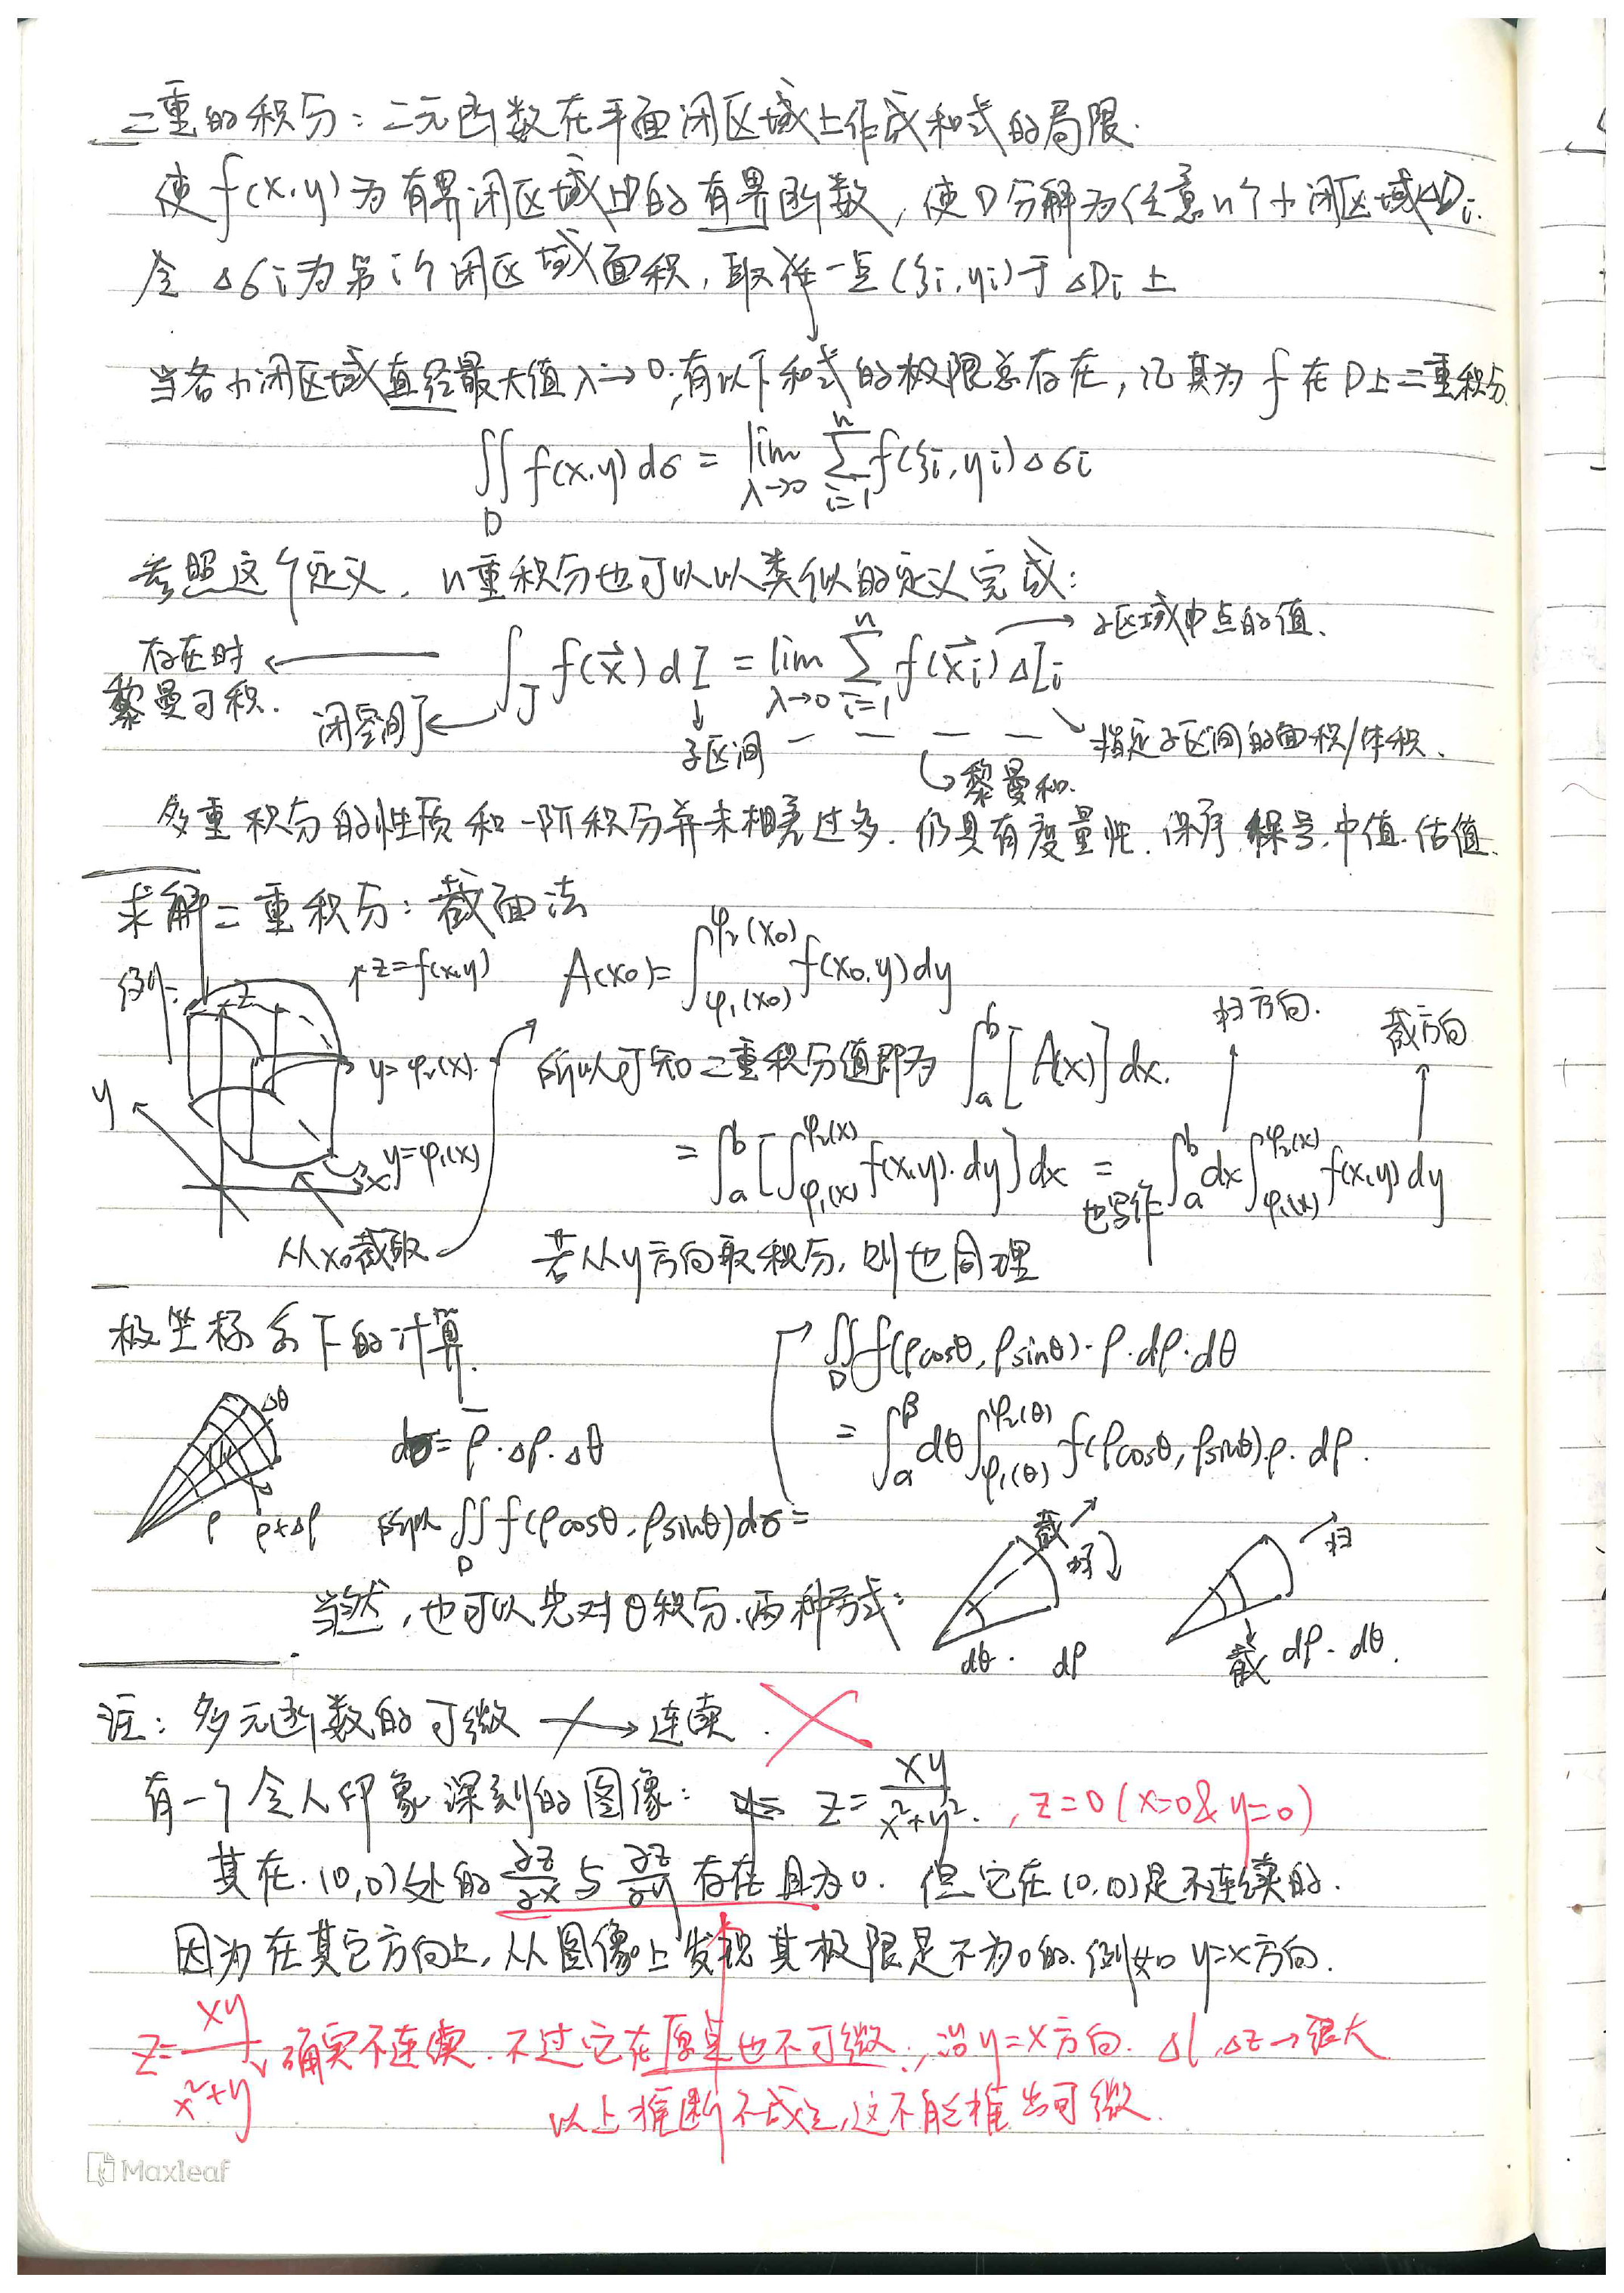 二重的积分：二元函数在平面闭区域上作成和式的局限.
使f(x,y)为有界闭区域上的有界函数，使D分解为任意n个小闭区域ΔDi.
令Δσi为第i个闭区域面积，取任一点(ξi,yi)于ΔDi上
当各小闭区域直径最大值λ→0,有以下和式的极限总存在，记其为f在D上二重积分.
∬_D f(x,y)dσ = lim_{λ→0} Σ_{i=1}^{n} f(ξi,yi)Δσi
参照这个定义，n重积分也可以以类似的定义完成：
∫_J f(x⃗)dI = lim_{λ→0} Σ_{i=1}^{n} f(x⃗i)ΔIi
子区域中点的值.
存在时
黎曼可积.
闭空间J
子区间
指定子区间的面积/体积.
黎曼和.
多重积分的性质和一阶积分并未相差过多.仍具有度量性.保序 保号.中值.估值.
求解二重积分：截面法
例:
z
z=f(x,y)
A(x0)=∫_{φ1(x0)}^{φ2(x0)} f(x0,y)dy
y=φ2(x).
y
y=φ1(x)
x
从x0截取
所以可知二重积分值即为 ∫_a^b [A(x)]dx.
扫方向.
截方向
=∫_a^b [∫_{φ1(x)}^{φ2(x)} f(x,y)·dy]dx = ∫_a^b dx ∫_{φ1(x)}^{φ2(x)} f(x,y)dy
也写作
若从y方向取积分,则也同理
极坐标系下的计算.
∬_D f(ρcosθ,ρsinθ)·ρ·dρ·dθ
Δθ
dσ=ρ̄·Δρ·Δθ
=∫_α^β dθ ∫_{φ1(θ)}^{φ2(θ)} f(ρcosθ,ρsinθ)·ρ·dρ.
ρ ρ+Δρ
所以 ∬_D f(ρcosθ,ρsinθ)dσ=
当然，也可以先对θ积分.两种方式：
截
扫
dθ· dρ
扫
截
dρ·dθ.
注：多元函数的可微 → 连续.
有一个令人印象深刻的图像： z=xy/(x²+y²). , z=0(x=0&y=0)
其在.(0,0)处的∂z/∂x与∂z/∂y存在且为0.但它在(0,0)是不连续的.
因为在其它方向上,从图像上发现其极限是不为0的.例如y=x方向.
z=xy/(x²+y²) 确实不连续.不过它在原点也不可微.,沿y=x方向.Δl,Δz→很大
以上推断不成立,这不能推出可微.
Maxleaf